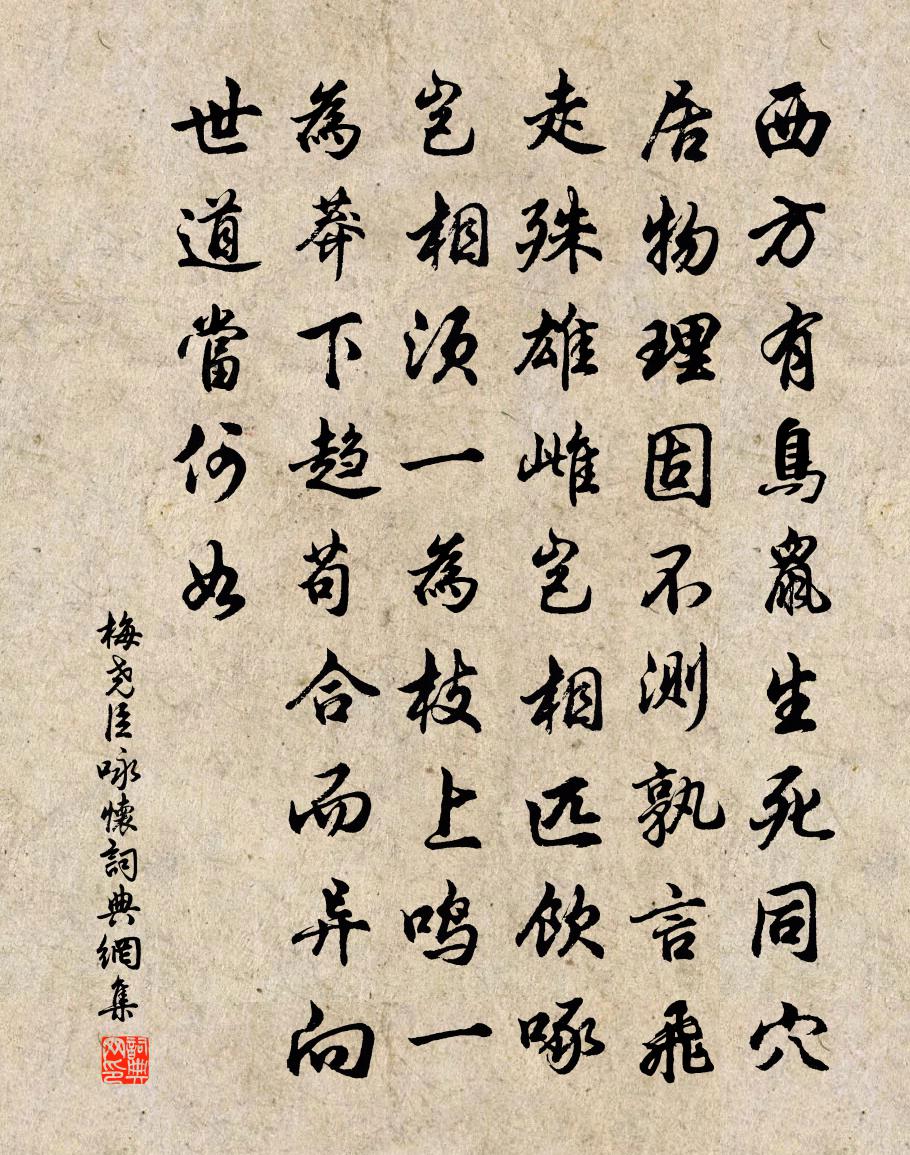 西方有鳥鼠生死同穴
居物理固不測孰言飛
走殊雄雌豈相匹飲啄
豈相須一為枝上鳴一
為莽下趨苟合而异向
世道當何如
梅堯臣咏懷詞典網集
詞典网印